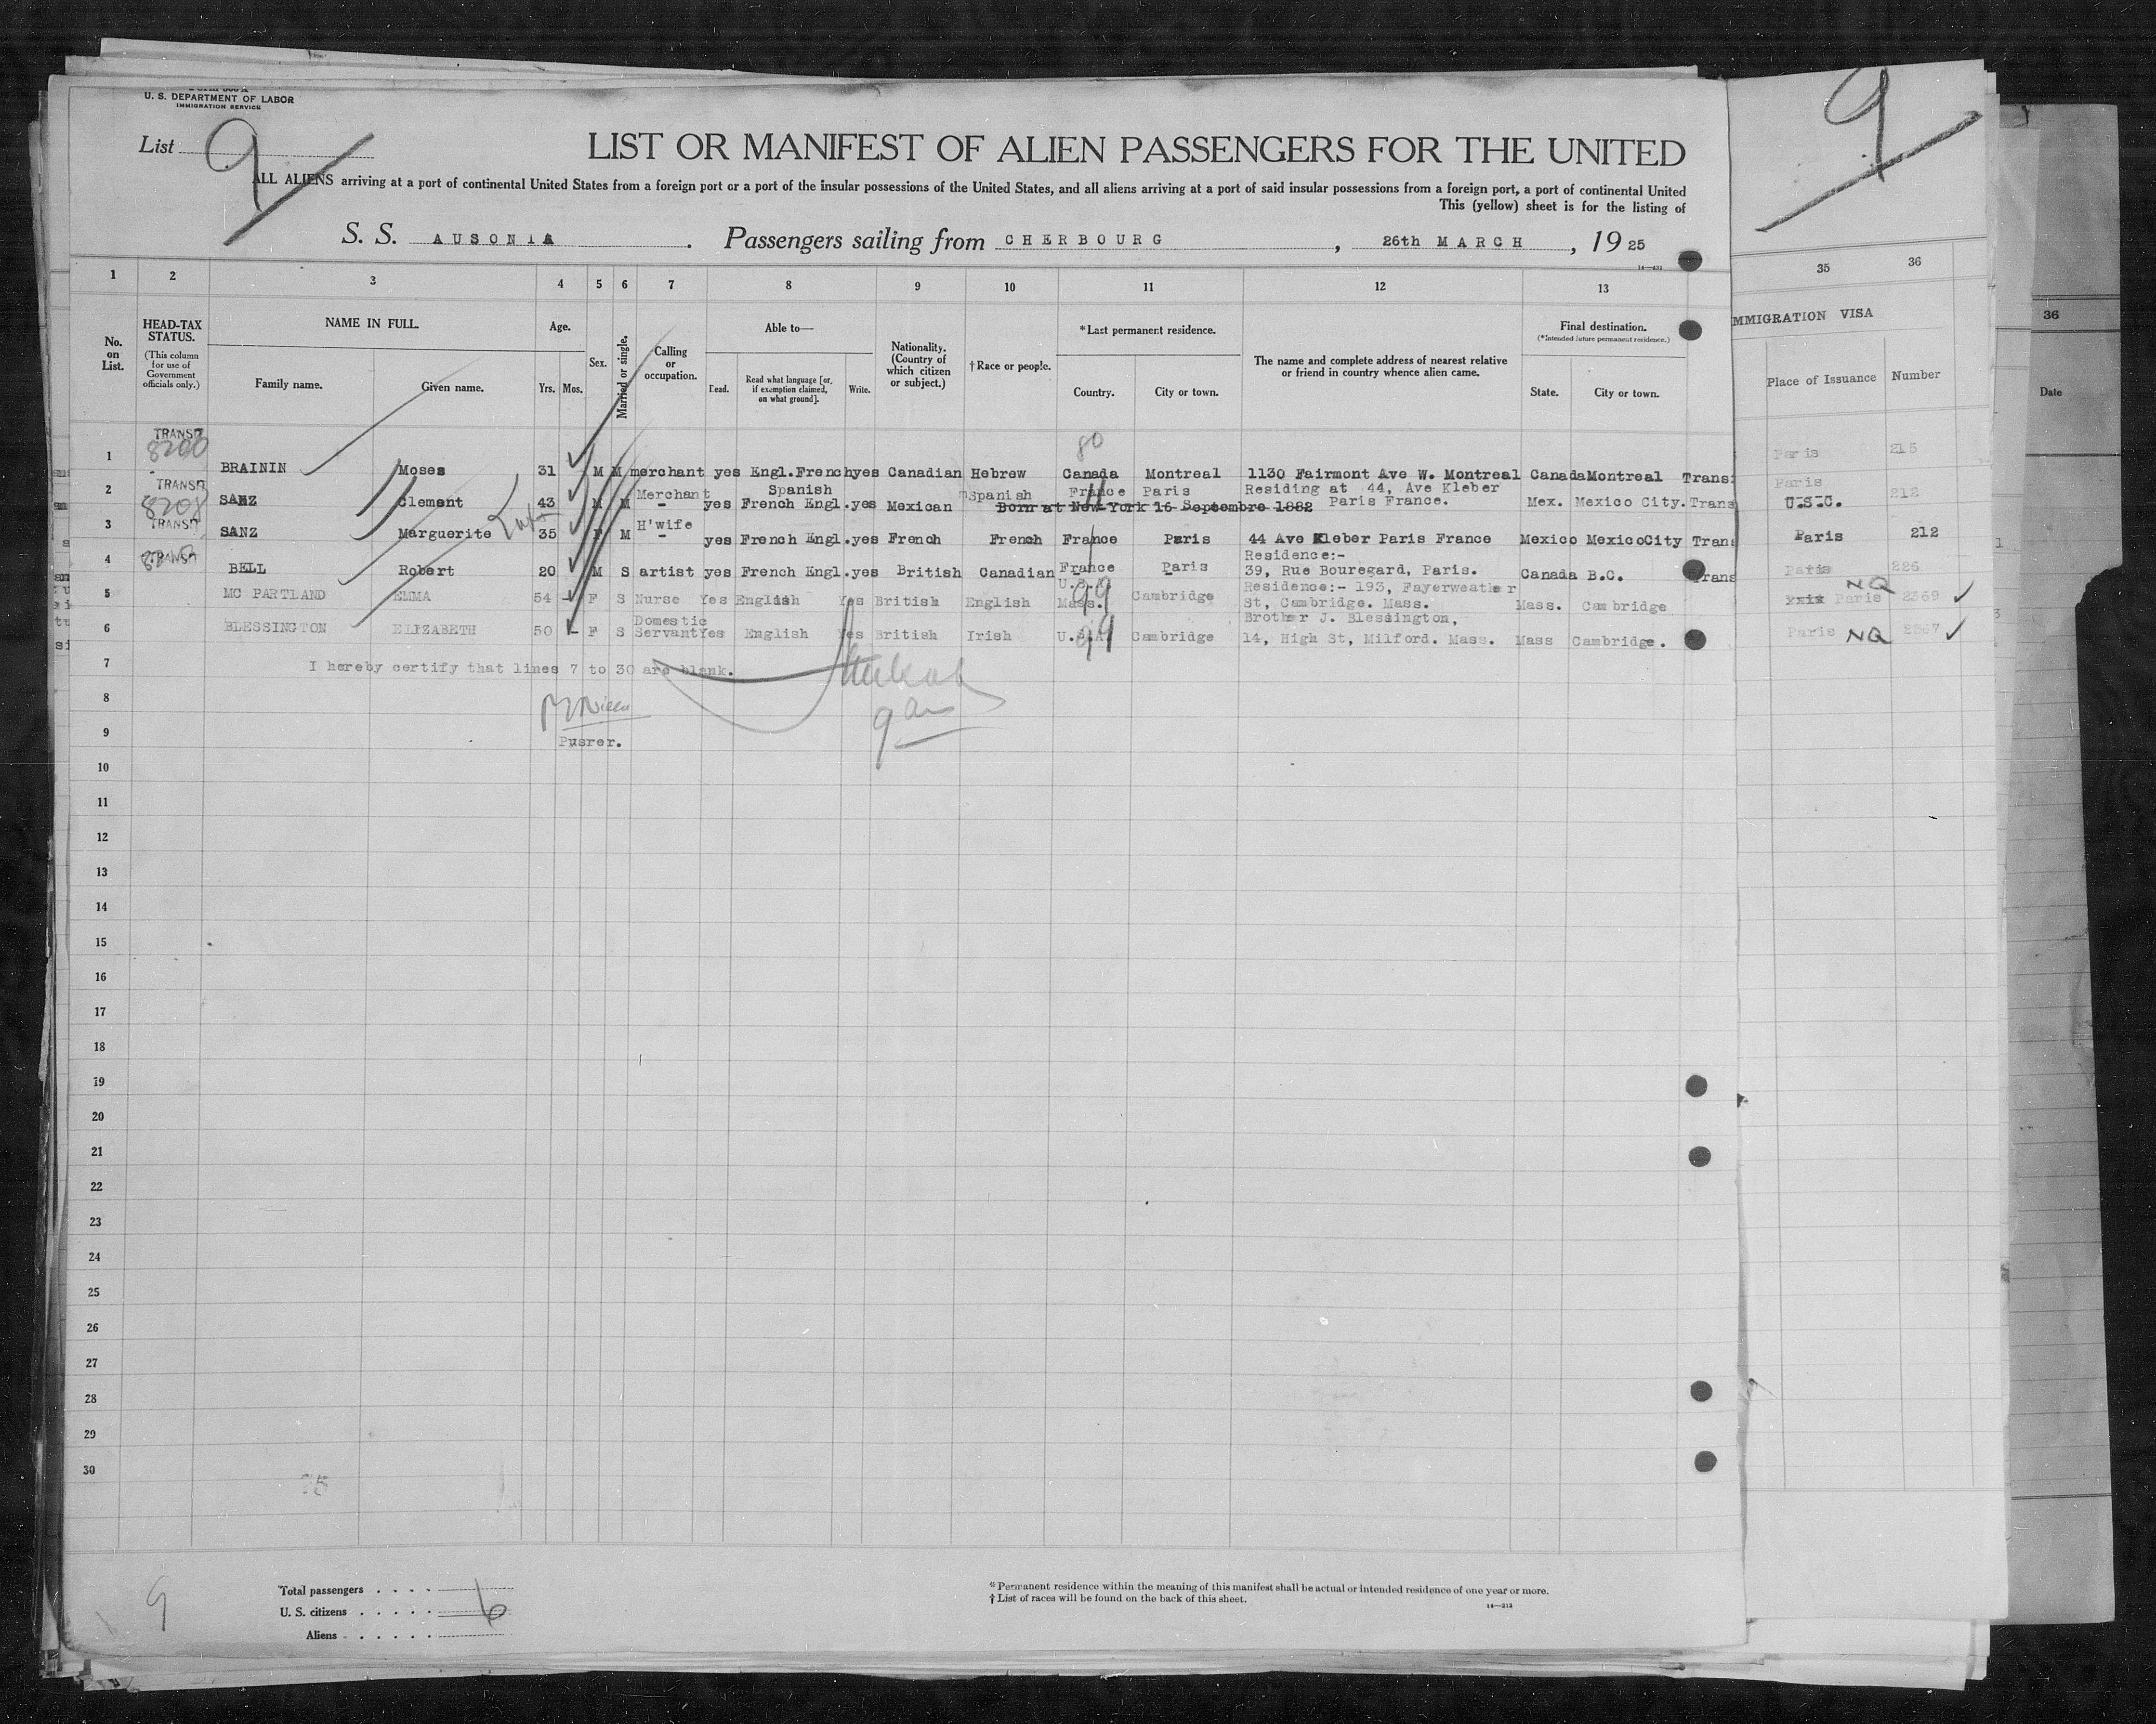 U. S. DEPARTMENT OF LABOR
IMMIGRATION SERVICE
List 9
LIST OR MANIFEST OF ALIEN PASSENGERS FOR THE UNITED
ALL ALIENS arriving at a port of continental United States from a foreign port or a port of the insular possessions of the United States, and all aliens arriving at a port of said insular possessions from a foreign port, a port of continental United
This (yellow) sheet is for the listing of
S. S. AUSONIA. Passengers sailing from CHERBOURG, 26th MARCH, 1925
9
1 2 3 4 5 6 7 8 9 10 11 12 13 35 36
No. on List.
HEAD-TAX STATUS.
(This column for use of Government officials only.)
NAME IN FULL.
Family name. Given name.
Age.
Yrs. Mos.
Sex.
Married or single.
Calling or occupation.
Able to—
Read. Read what language [or, if exemption claimed, on what ground]. Write.
Nationality. (Country of which citizen or subject.)
† Race or people.
* Last permanent residence.
Country. City or town.
The name and complete address of nearest relative or friend in country whence alien came.
Final destination.
(*Intended future permanent residence.)
State. City or town.
MMIGRATION VISA
Place of Issuance Number
36
Date
TRANSIT 8200 80
1 BRAININ Moses 31 M M merchant yes Engl.French yes Canadian Hebrew Canada Montreal 1130 Fairmont Ave W. Montreal Canada Montreal Trans Paris 215
TRANSIT Merchant Spanish Spanish France Paris Residing at 44, Ave Kleber Paris
2 SANZ Clement 43 M M - yes French Engl. yes Mexican Born at New York 16 Septembre 1882 Paris France. Mex. Mexico City. Trans U.S.C. 212
TRANSIT H'wife
3 SANZ Marguerite 35 F M - yes French Engl. yes French French France Paris 44 Ave Kleber Paris France Mexico MexicoCity Trans Paris 212
TRANSIT Residence:-
4 BELL Robert 20 M S artist yes French Engl. yes British Canadian France Paris 39, Rue Bouregard, Paris. Canada B.C. Trans Paris 226
U.S. Residence:- 193, Fayerweather NQ
5 MC PARTLAND EMMA 54 - F S Nurse Yes English Yes British English Mass. Cambridge St, Cambridge. Mass. Mass. Cambridge Paris 2369
Domestic Brother J. Blessington,
6 BLESSINGTON ELIZABETH 50 - F S Servant Yes English Yes British Irish U.S.A. Cambridge 14, High St, Milford. Mass. Mass Cambridge. Paris NQ 2367
7 I hereby certify that lines 7 to 30 are blank.
8
9 Pusrer.
10
11
12
13
14
15
16
17
18
19
20
21
22
23
24
25
26
27
28
29
30
9
Total passengers . . . .
U. S. citizens . . . . . 6
Aliens . . . . . .
* Permanent residence within the meaning of this manifest shall be actual or intended residence of one year or more.
† List of races will be found on the back of this sheet.
14—212